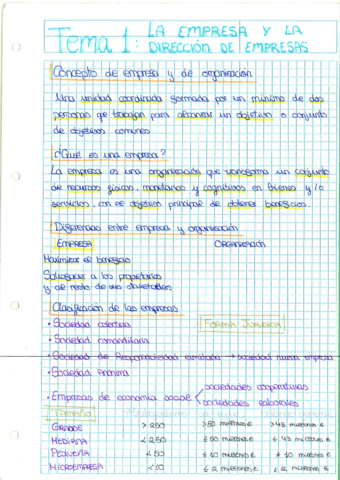 Tema 1: LA EMPRESA Y LA
DIRECCIÓN DE EMPRESAS
Concepto de empresa y de organización
Una unidad coordinada formada por un mínimo de dos
personas que trabajan para alcanzar un objetivo o conjunto
de objetivos comunes
¿Qué es una empresa?
La empresa es una organización que transforma un conjunto
de recursos físicos, monetarios y cognitivos en bienes y/o
servicios, con el objetivo principal de obtener beneficios.
Diferencias entre empresa y organización
EMPRESA ORGANIZACIÓN
Maximizar el beneficio
Satisfacer a los propietarios
y al resto de sus stakeholders
Clasificación de las empresas
• Sociedad colectiva FORMA JURÍDICA
• Sociedad comanditaria
• Sociedad de Responsabilidad limitada → sociedad nueva empresa
• Sociedad Anónima
• Empresas de economía social sociedades cooperativas
sociedades laborales
TAMAÑO
GRANDE > 250 > 50 millones € > 43 millones €
MEDIANA < 250 ≤ 50 millones € ≤ 43 millones €
PEQUEÑA < 50 ≤ 10 millones € ≤ 10 millones €
MICROEMPRESA < 10 ≤ 2 millones € ≤ 2 millones €